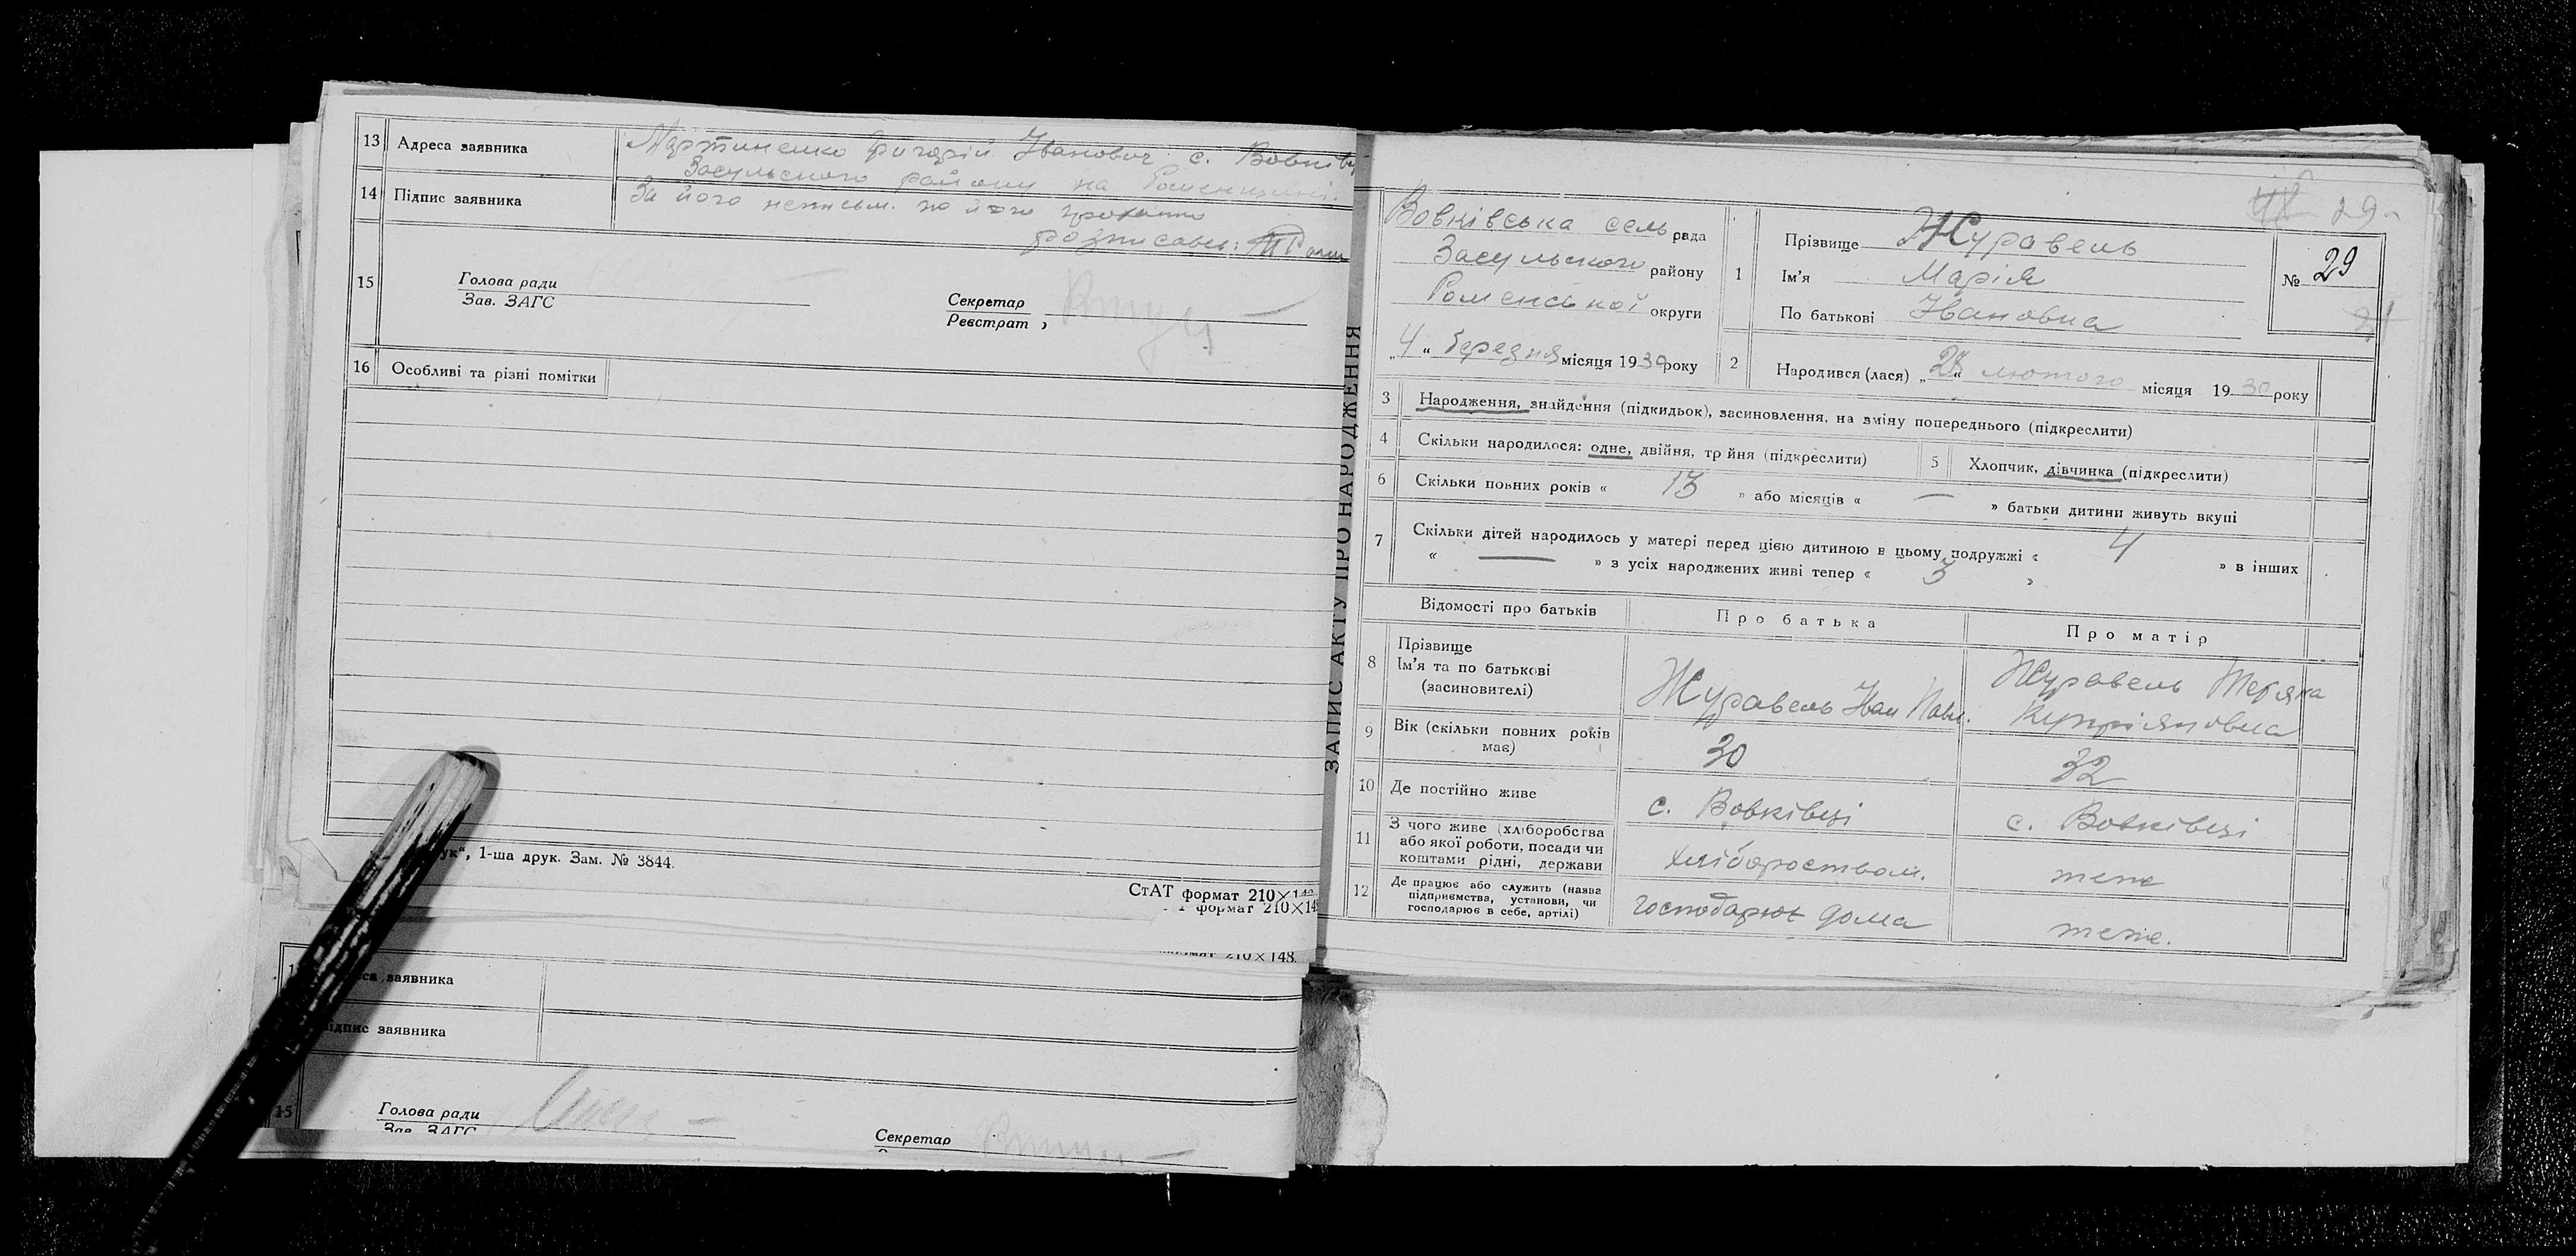 13 Адреса заявника Мартиненко Григорій Іванович с. Вовківц
Засульського району на Роменщині.
14 Підпис заявника За його неписьм. по його проханню
розписавсь:
15 Голова ради
Зав. ЗАГС
Секретар
Реєстрат
16 Особливі та різні помітки
ук", 1-ша друк. Зам. № 3844.
СтАТ формат 210×148
формат 210×148
формат 210×148.
заявника
підпис заявника
15 Голова ради
Зав. ЗАГС
Секретар
ЗАПИС АКТУ ПРО НАРОДЖЕННЯ
29
Вовківська сель рада
Засульського району
Роменської округи
„4“ березня місяця 1930 року
1 Прізвище Журавель
Ім'я Марія
По батькові Івановна
№ 29
2 Народився (лася) „28“ лютого місяця 1930 року
3 Народження, знайдення (підкидьок), засиновлення, на зміну попереднього (підкреслити)
4 Скільки народилося: одне, двійня, трійня (підкреслити) 5 Хлопчик, дівчинка (підкреслити)
6 Скільки повних років « 13 » або місяців « — » батьки дитини живуть вкупі
7 Скільки дітей народилось у матері перед цією дитиною в цьому подружжі « 4 » в інших
« — » з усіх народжених живі тепер « 3 »
Відомості про батьків Про батька Про матір
8 Прізвище
Ім'я та по батькові
(засновителі)
Журавель Іван Павл.
Журавель
Купріяновна
9 Вік (скільки повних років має) 30 32
10 Де постійно живе с. Вовківці с. Вовківці
11 З чого живе (хліборобства
або якої роботи, посади чи
коштами рідні, держави
хлібороством. теж
12 Де працює або служить (назва
підприємства, установи, чи
господарює в себе, артілі)
господарює дома теж.